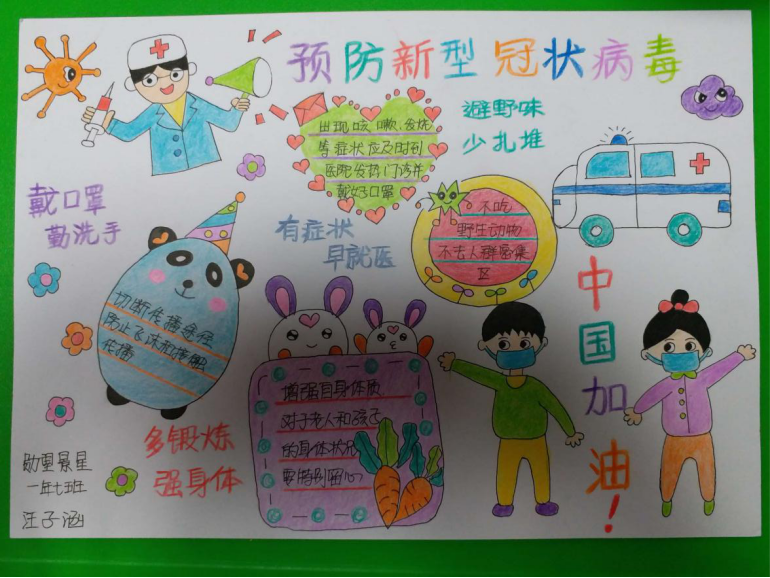 预防新型冠状病毒
避野味
少扎堆
出现咳嗽、发烧
等症状应及时到
医院发热门诊并
戴好口罩
不吃
野生动物
不去人群密集
区
戴口罩
勤洗手
有症状
早就医
切断传播途径
防止飞沫和接触
传播
中国加油!
增强自身体质
对于老人和孩子
的身体状况
要特别留心
多锻炼
强身体
励星景星
一年七班
汪子涵